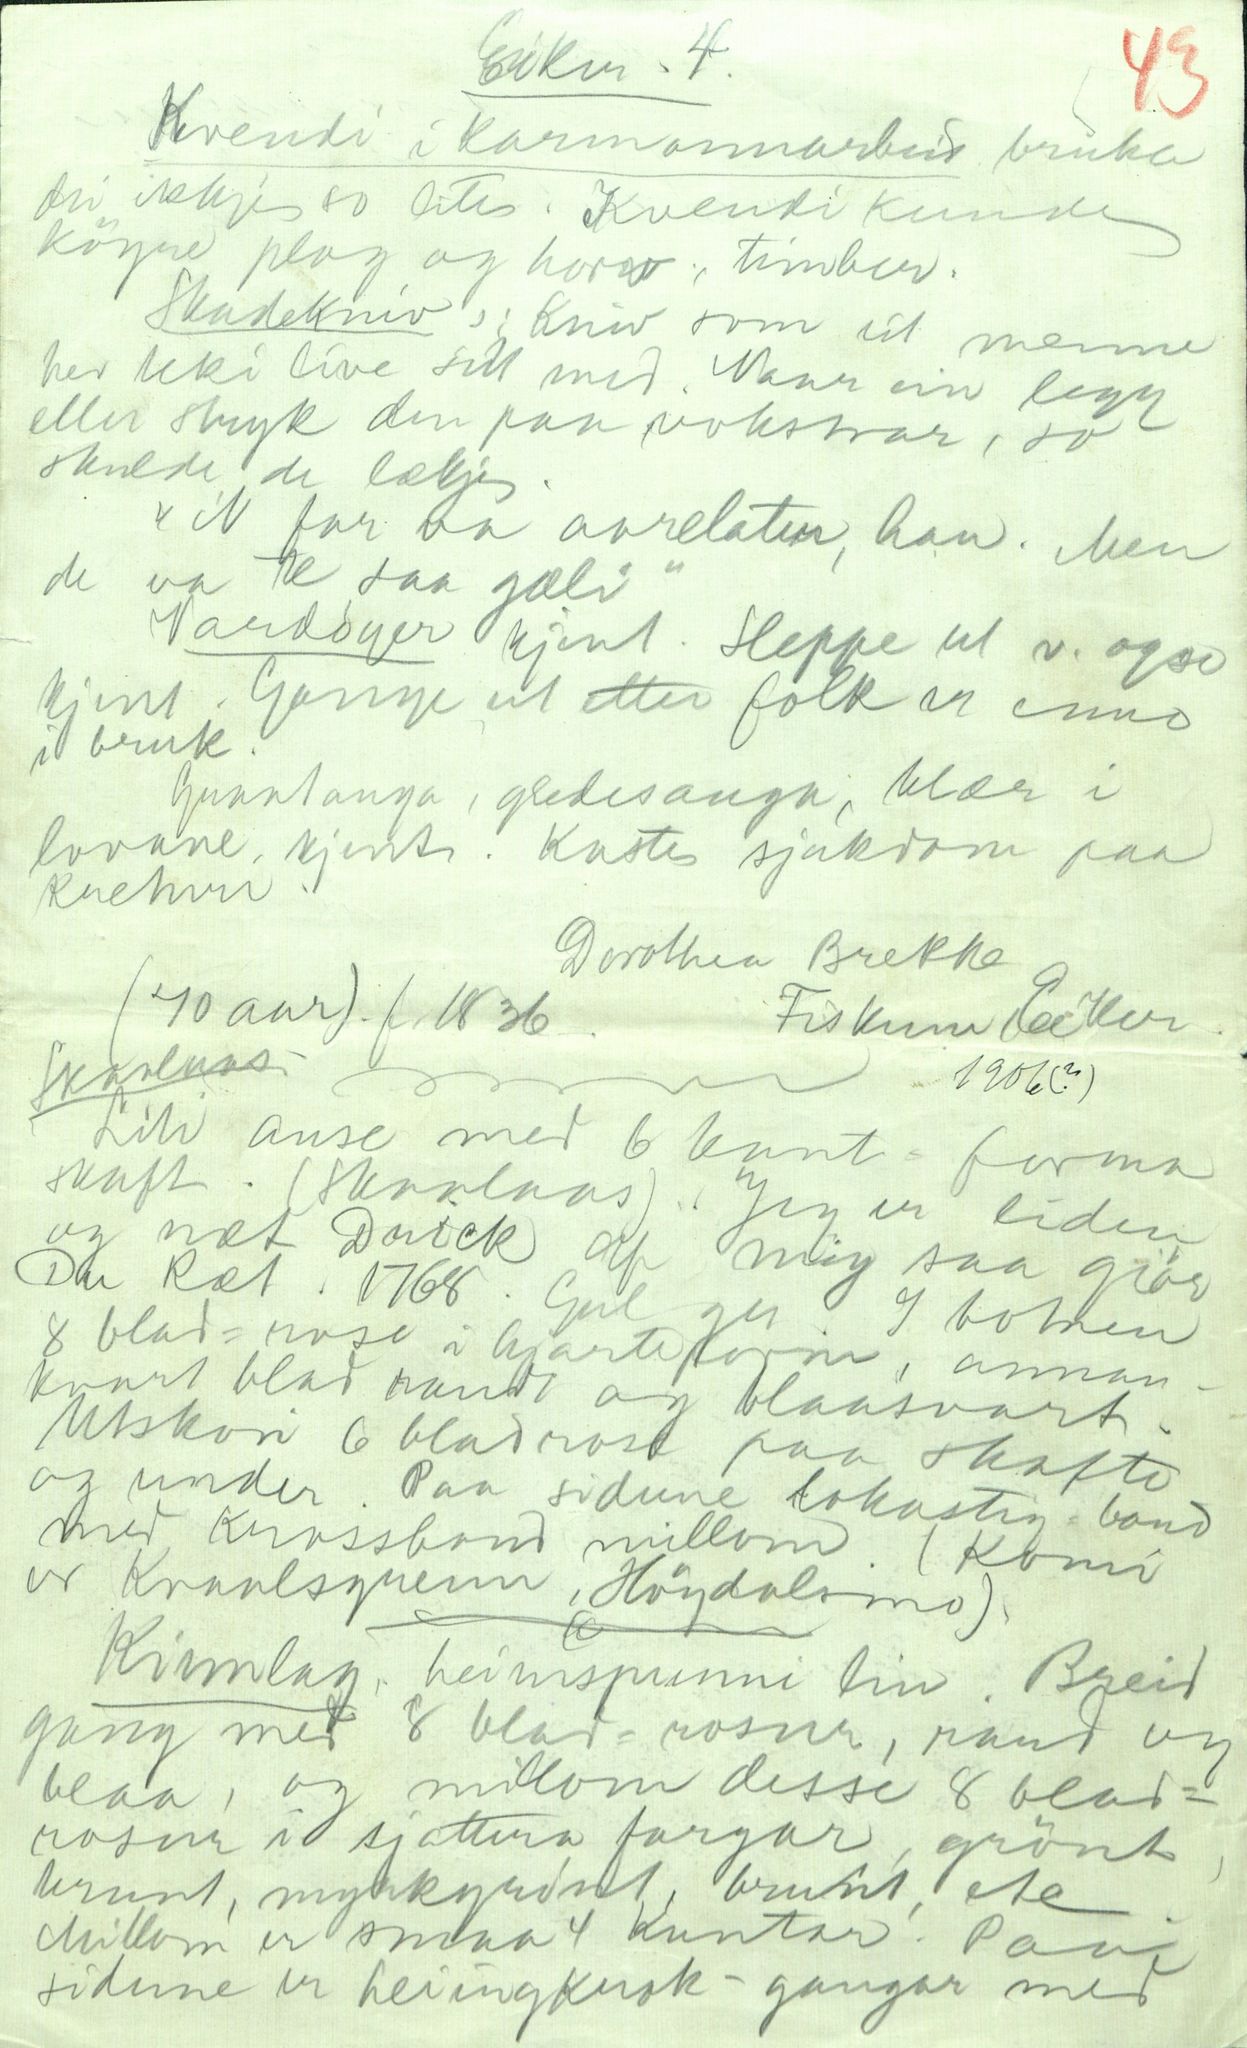 Eiker. 4.
43
Kvendi i karmannarbeid bruka
dei ikkje so lite. Kvendi kunde
köyre plog og horv, timber.
Skadekniv, kniv som eit menne
hev teki live sitt med. Naar ein legg
eller stryk den paa vokstrar, so
skulde de lækjes.
"N far va aarelater, han. Men
de va 'kje saa gæli"
Vardöger kjent. Sleppe ut v. ogso
kjent. Gange ut etter folk er enno
i bruk.
Graatauga, gledesauga, klær i
lovane, kjent. Kaste sjukdom paa
kretur.
Dorothea Brekke
(70 aar). f. 1836. Fiskum Eiker.
1906(?)
Skaalaas
Liti ause med 6 kant-forma
skaft. (Skaalaas). Jeg er liden
og næt Drick af mig saa giör
Du Ræt. 1768. Gul ger I botnen
8 blad-rose i hjarteform, annan-
kvart blad raudt og blaasvart.
Utskori 6 bladrose paa skafte
og under. Paa sidune tokastig-band
med krossband millom. (Komi
er Kvaalsgrenn, Höydalsmo).
Kinnlag, heimspunni lin. Breid
gang med 8 blad-rosur, raud og
blaa, og millom desse 8 blad-
rosur i sjatera fargar, grönt,
brunt, myrkgrönt, brunt, etc
Millom er smaa 4 kantar. Paa
sidune er heiingkrok-gangar med